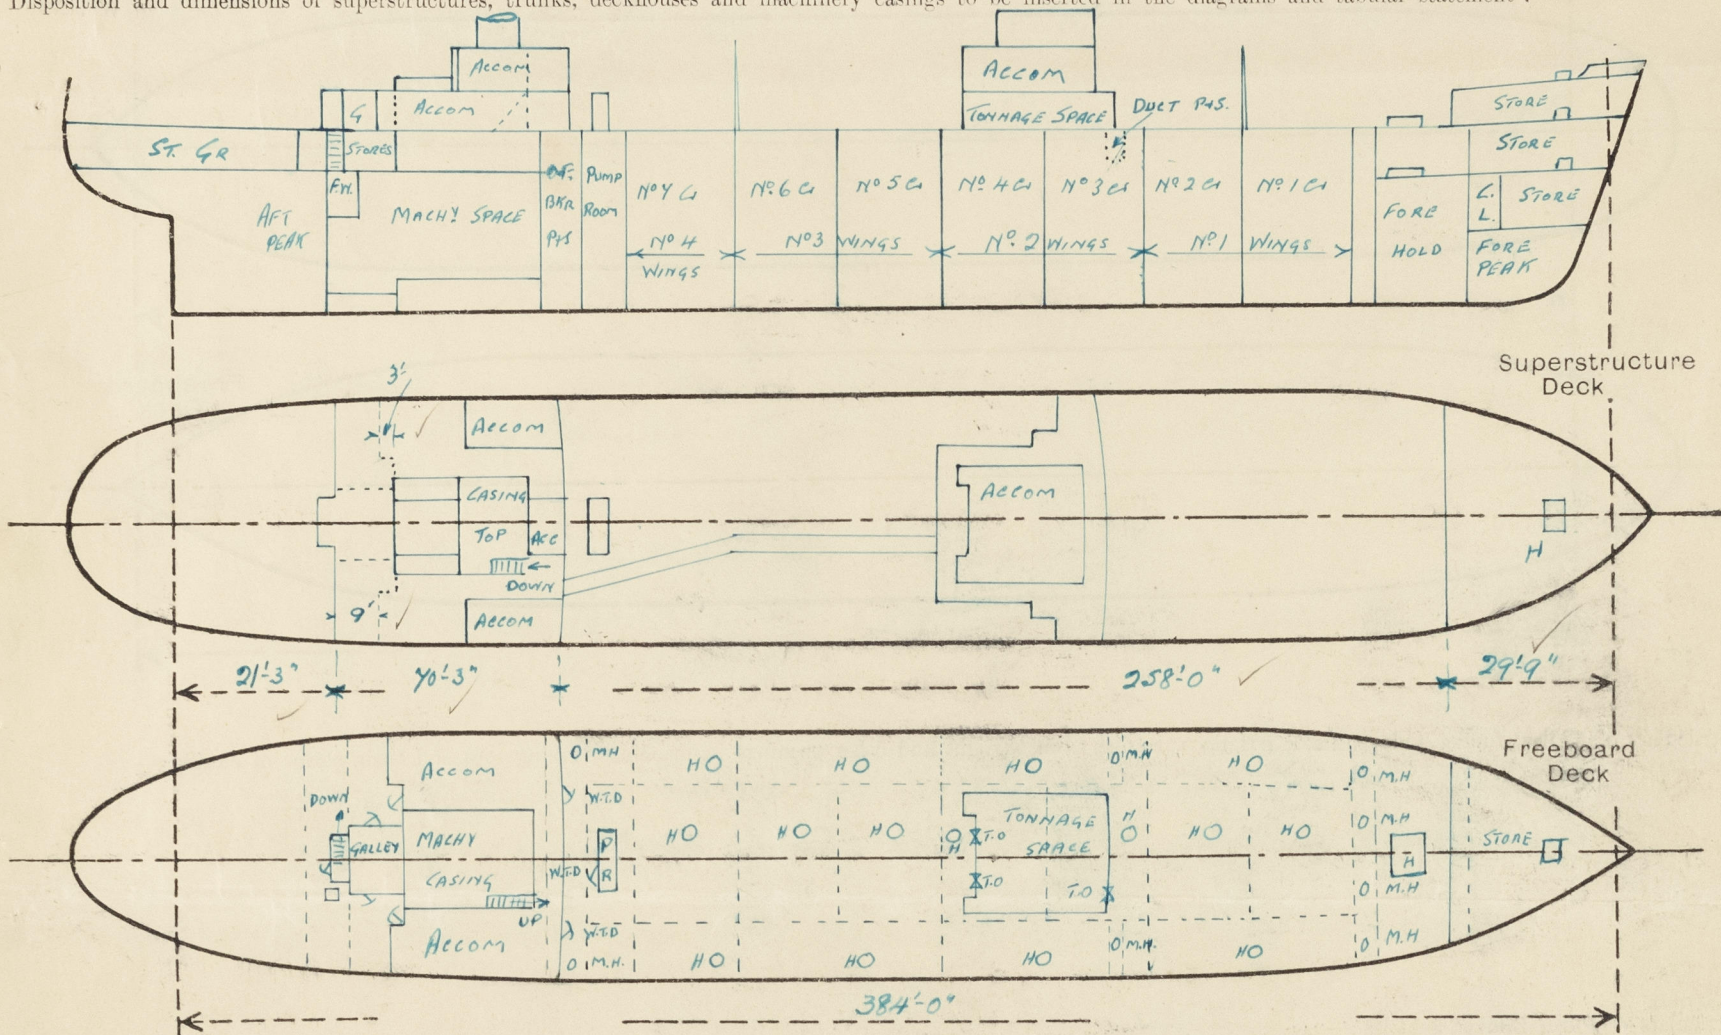 Disposition and dimensions of superstructures, trunks, deckhouses and machinery casings to be inserted in the diagrams and tabular statement :
ACCOM
G
ACCOM
ACCOM
TONNAGE SPACE
DUCT P&S.
STORE
ST. GR
STORES
STORE
F.W.
AFT
PEAK
MACHY SPACE
O.F.
BKR
P&S
PUMP
ROOM
Nº7 C
Nº.6 C
Nº5 C
Nº.4 C
Nº3 C
Nº2 C
Nº.1 C
Nº4
WINGS
Nº3 WINGS
Nº.2 WINGS
Nº1 WINGS
FORE
HOLD
C.
L.
STORE
FORE
PEAK
Superstructure
Deck
3'
ACCOM
CASING
TOP
ACC
DOWN
ACCOM
H
9'
ACCOM
21'-3"
70'-3"
258'-0"
29'-9"
Freeboard
Deck
ACCOM
DOWN
GALLEY
MACHY
CASING
UP
ACCOM
O M.H
W.T.D
W.T.D
P
R
W.T.D
O M.H.
HO
HO
HO
HO
O M.H
O M.H
HO
HO
HO
O
H
T.O
TONNAGE
SPACE
T.O
T.O
H
O
HO
HO
O M.H
H
STORE
O M.H
HO
HO
HO
O M.H.
HO
O M.H
384'-0"